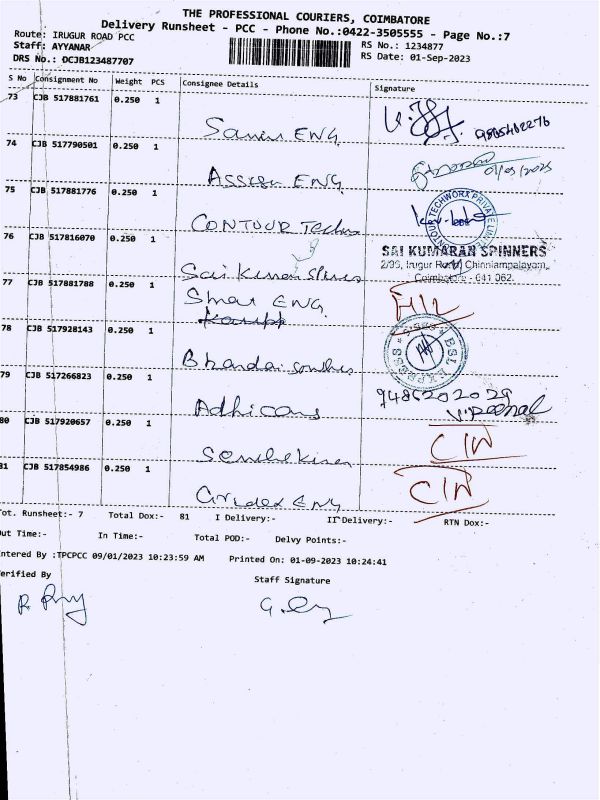 THE PROFESSIONAL COURIERS, COIMBATORE
Delivery Runsheet - PCC - Phone No.:0422-3505555 - Page No.:7
Route: IRUGUR ROAD PCC
Staff: AYYANAR
DRS No.: DCJB123487707
RS No.: 1234877
RS Date: 01-Sep-2023
S No Consignment No Weight PCS Consignee Details Signature
73 CJB 517881761 0.250 1
ENG
74 CJB 517790501 0.250 1
ENG
01/09/2023
75 CJB 517881776 0.250 1
CONTOUR
CONTOUR TECHWORX PRIVATE LIMITED
76 CJB 517816070 0.250 1
Sai
SAI KUMARAN SPINNERS
2/35, Irugur Road, Chinniampalayam,
Coimbatore - 641 062.
77 CJB 517881788 0.250 1
ENG
78 CJB 517928143 0.250 1
BSL EXPRESS
79 CJB 517266823 0.250 1
9486202029
80 CJB 517920657 0.250 1
C/W
81 CJB 517854986 0.250 1
ENG
C/W
Tot. Runsheet:- 7 Total Dox:- 81 I Delivery:- II Delivery:- RTN Dox:-
Out Time:- In Time:- Total POD:- Delvy Points:-
Entered By :TPCPCC 09/01/2023 10:23:59 AM Printed On: 01-09-2023 10:24:41
Verified By
Staff Signature